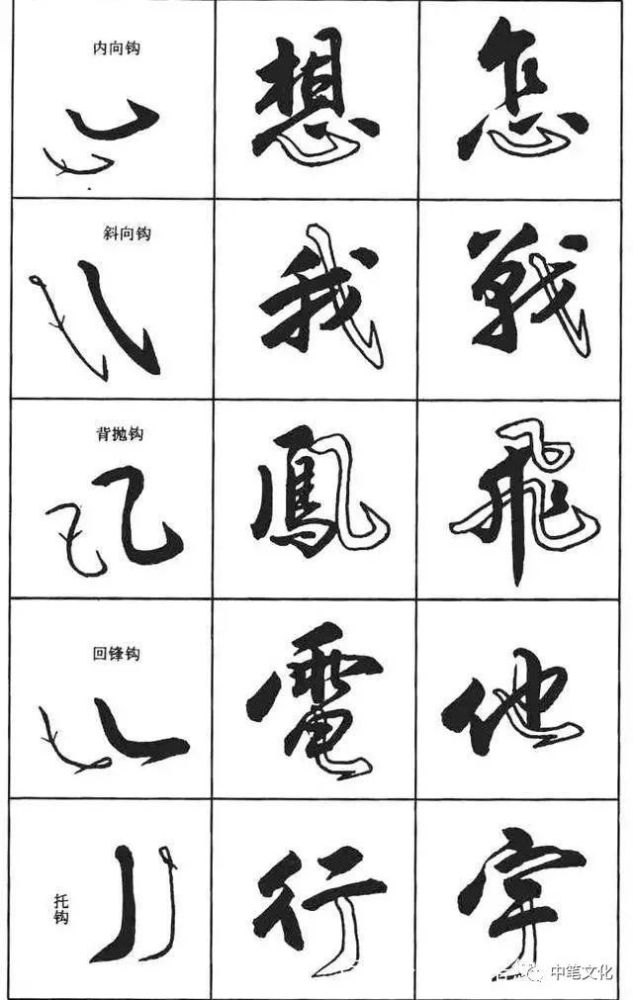 内向钩
想
怎
斜向钩
我
戰
背抛钩
鳳
飛
回锋钩
電
他
托钩
行
宇
中笔文化